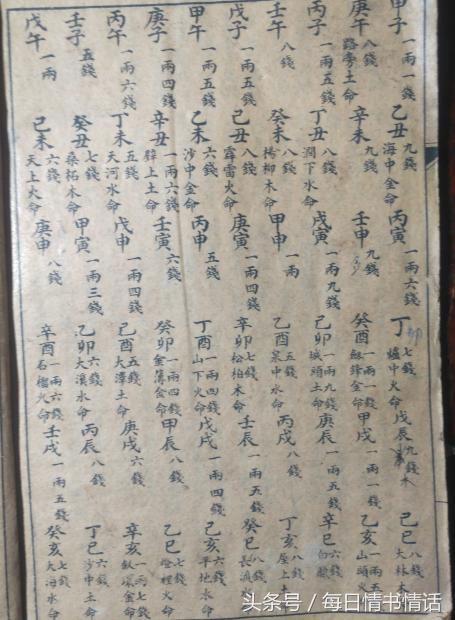 甲子 一兩一錢 乙丑 九錢 海中金命 丙寅 一兩六錢 丁卯 七錢 爐中火命 戊辰 九錢 木 己巳 八錢 大林木
庚午 八錢 路旁土命 辛未 九錢 壬申 九錢 癸酉 一兩一錢 劍鋒金命 甲戌 一兩一錢 乙亥 一兩五 山頭火
丙子 一兩五錢 丁丑 八錢 澗下水命 戊寅 一兩九錢 己卯 一兩九錢 城頭土命 庚辰 一兩五錢 辛巳 六錢 白臘
壬午 八錢 癸未 八錢 楊柳木命 甲申 一兩 乙酉 五錢 泉中水命 丙戌 八錢 丁亥 八錢 屋上土
戊子 一兩五錢 己丑 八錢 霹雷火命 庚寅 一兩四錢 辛卯 七錢 松柏木命 壬辰 一兩五錢 癸巳 八錢 長流水
甲午 一兩五錢 乙未 六錢 沙中金命 丙申 五錢 丁酉 一兩四錢 山下火命 戊戌 一兩四錢 己亥 六錢 平地水命
庚子 一兩四錢 辛丑 一兩六錢 壁上土命 壬寅 六錢 癸卯 一兩四錢 金簿金命 甲辰 八錢 乙巳 七錢 燈裡火命
丙午 一兩六錢 丁未 五錢 天河水命 戊申 一兩四錢 己酉 五錢 大澤土命 庚戌 六錢 辛亥 一兩七錢 釵環金命
壬子 五錢 癸丑 七錢 桑柘木命 甲寅 一兩三錢 乙卯 六錢 大溪水命 丙辰 八錢 丁巳 六錢 沙中土命
戊午 一兩 己未 六錢 天上火命 庚申 八錢 辛酉 一兩六錢 石榴火命 壬戌 一兩五錢 癸亥 七錢 大海水命
头条号 / 每日情书情话